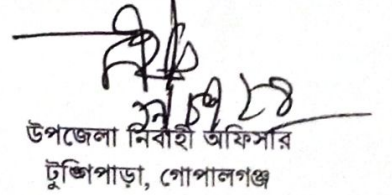 উপজেলা নির্বাহী অফিসার
টুঙ্গিপাড়া, গোপালগঞ্জ